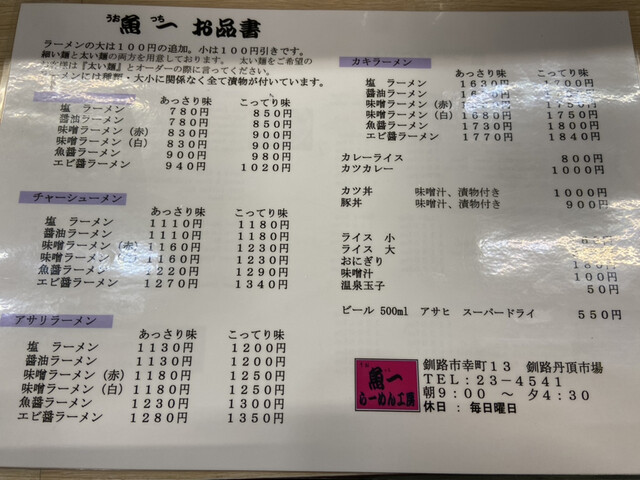 うお つち
魚 一 お品書
ラーメンの大は１００円の追加。小は１００円引きです。
細い麺と太い麺の両方を用意しております。 太い麺をご希望の
お客様は『太い麺』とオーダーの際に言ってください。
ラーメンには種類・大小に関係なく全て漬物が付いています。
あっさり味 こってり味
塩 ラーメン 780円 850円
醤油ラーメン 780円 850円
味噌ラーメン（赤） 830円 900円
味噌ラーメン（白） 830円 900円
魚醤ラーメン 900円 980円
エビ醤ラーメン 940円 1020円
チャーシューメン
あっさり味 こってり味
塩 ラーメン 1110円 1180円
醤油ラーメン 1110円 1180円
味噌ラーメン（赤） 1160円 1230円
味噌ラーメン（白） 1160円 1230円
魚醤ラーメン 1220円 1290円
エビ醤ラーメン 1270円 1340円
アサリラーメン
あっさり味 こってり味
塩 ラーメン 1130円 1200円
醤油ラーメン 1130円 1200円
味噌ラーメン（赤） 1180円 1250円
味噌ラーメン（白） 1180円 1250円
魚醤ラーメン 1230円 1300円
エビ醤ラーメン 1280円 1350円
カキラーメン
あっさり味 こってり味
塩 ラーメン 1630円 1700円
醤油ラーメン 1630円
味噌ラーメン（赤） 1750円
味噌ラーメン（白） 1680円 1750円
魚醤ラーメン 1730円 1800円
エビ醤ラーメン 1770円 1840円
カレーライス 800円
カツカレー 1000円
カツ丼 味噌汁、漬物付き 1000円
豚丼 味噌汁、漬物付き 900円
ライス 小
ライス 大
おにぎり 180円
味噌汁 100円
温泉玉子 50円
ビール 500ml アサヒ スーパードライ 550円
うお 一
魚一
らーめん工房
釧路市幸町１３ 釧路丹頂市場
ＴＥＬ：２３－４５４１
朝９：００ ～ 夕４：３０
休日 ： 毎日曜日